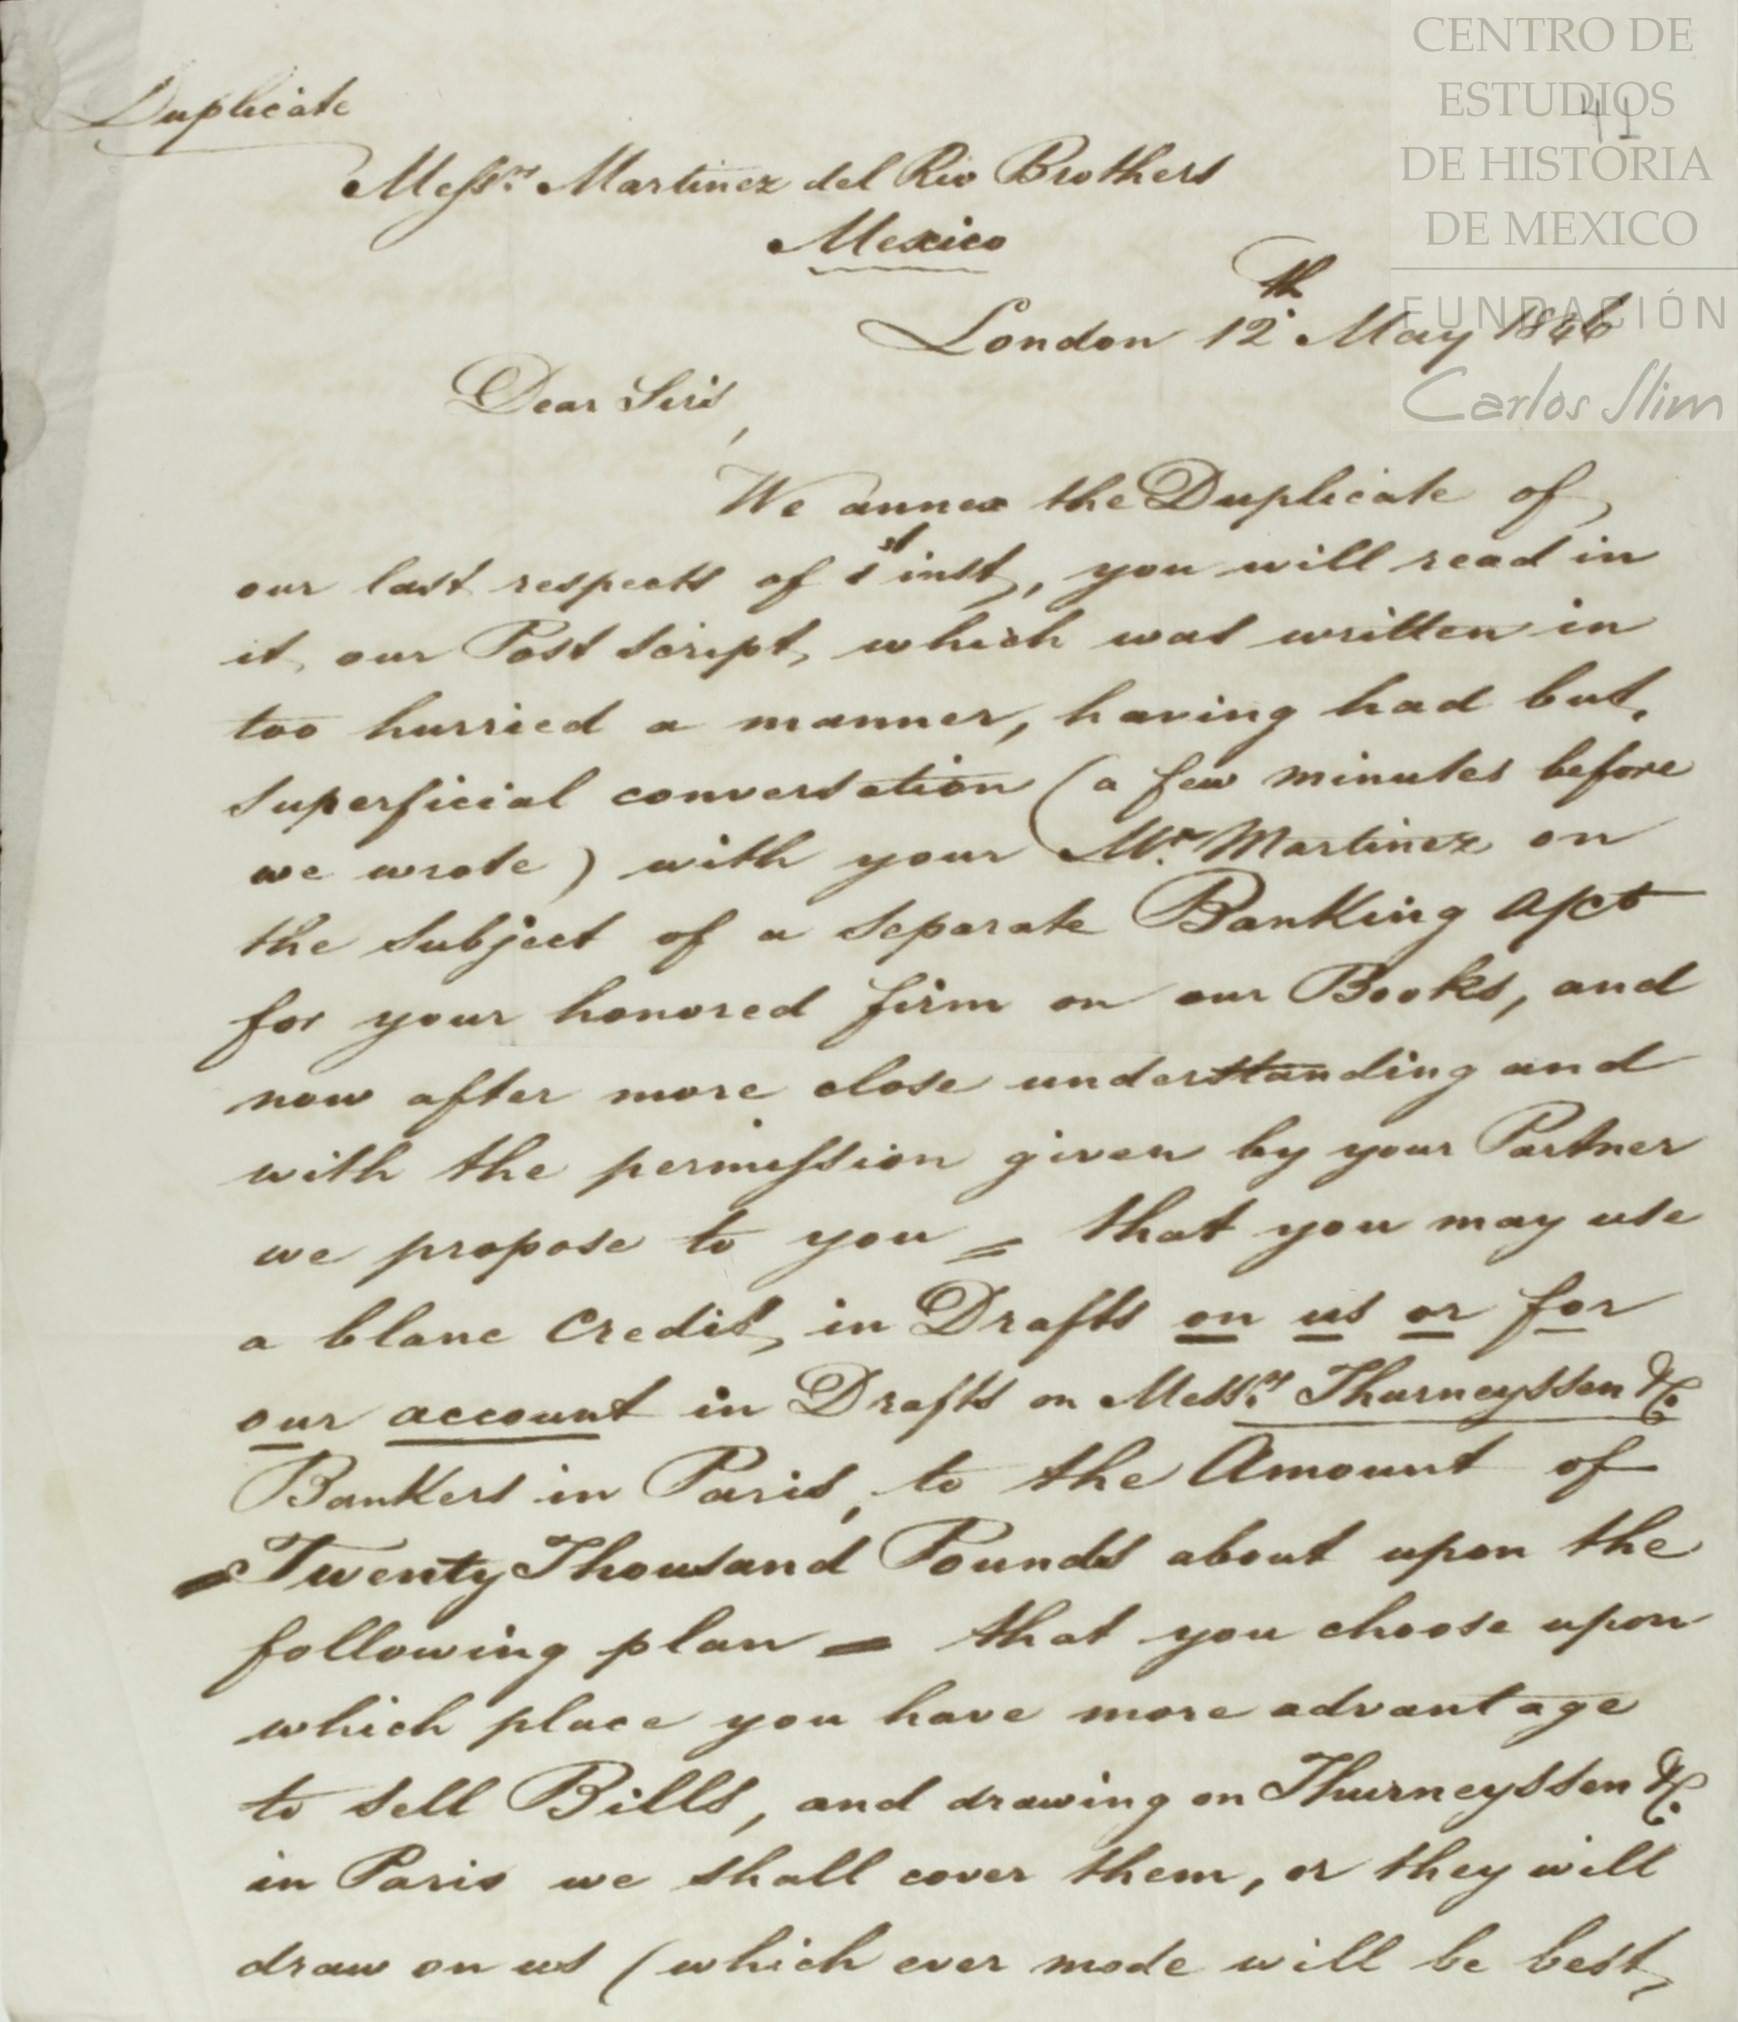 CENTRO DE
ESTUDIOS
DE HISTORIA
DE MEXICO
FUNDACIÓN
Carlos Slim
41
Duplicate
Messrs. Martinez del Rio Brothers
Mexico
London 12th May 1846
Dear Sirs,
We annex the Duplicate of
our last respects of 1st inst, you will read in
it, our Post script, which was written in
too hurried a manner, having had but
superficial conversation (a few minutes before
we wrote) with your Mr. Martinez on
the subject of a separate Banking a/ct
for your honored firm on our Books, and
now after more close understanding and
with the permission given by your Partner
we propose to you = that you may use
a blanc Credit, in Drafts on us or for
our account in Drafts on Messrs. Thurneyssen &C.
Bankers in Paris, to the Amount of
= Twenty Thousand Pounds about upon the
following plan = that you choose upon
which place you have more advantage
to sell Bills, and drawing on Thurneyssen &C.
in Paris we shall cover them, or they will
draw on us (which ever mode will be best,